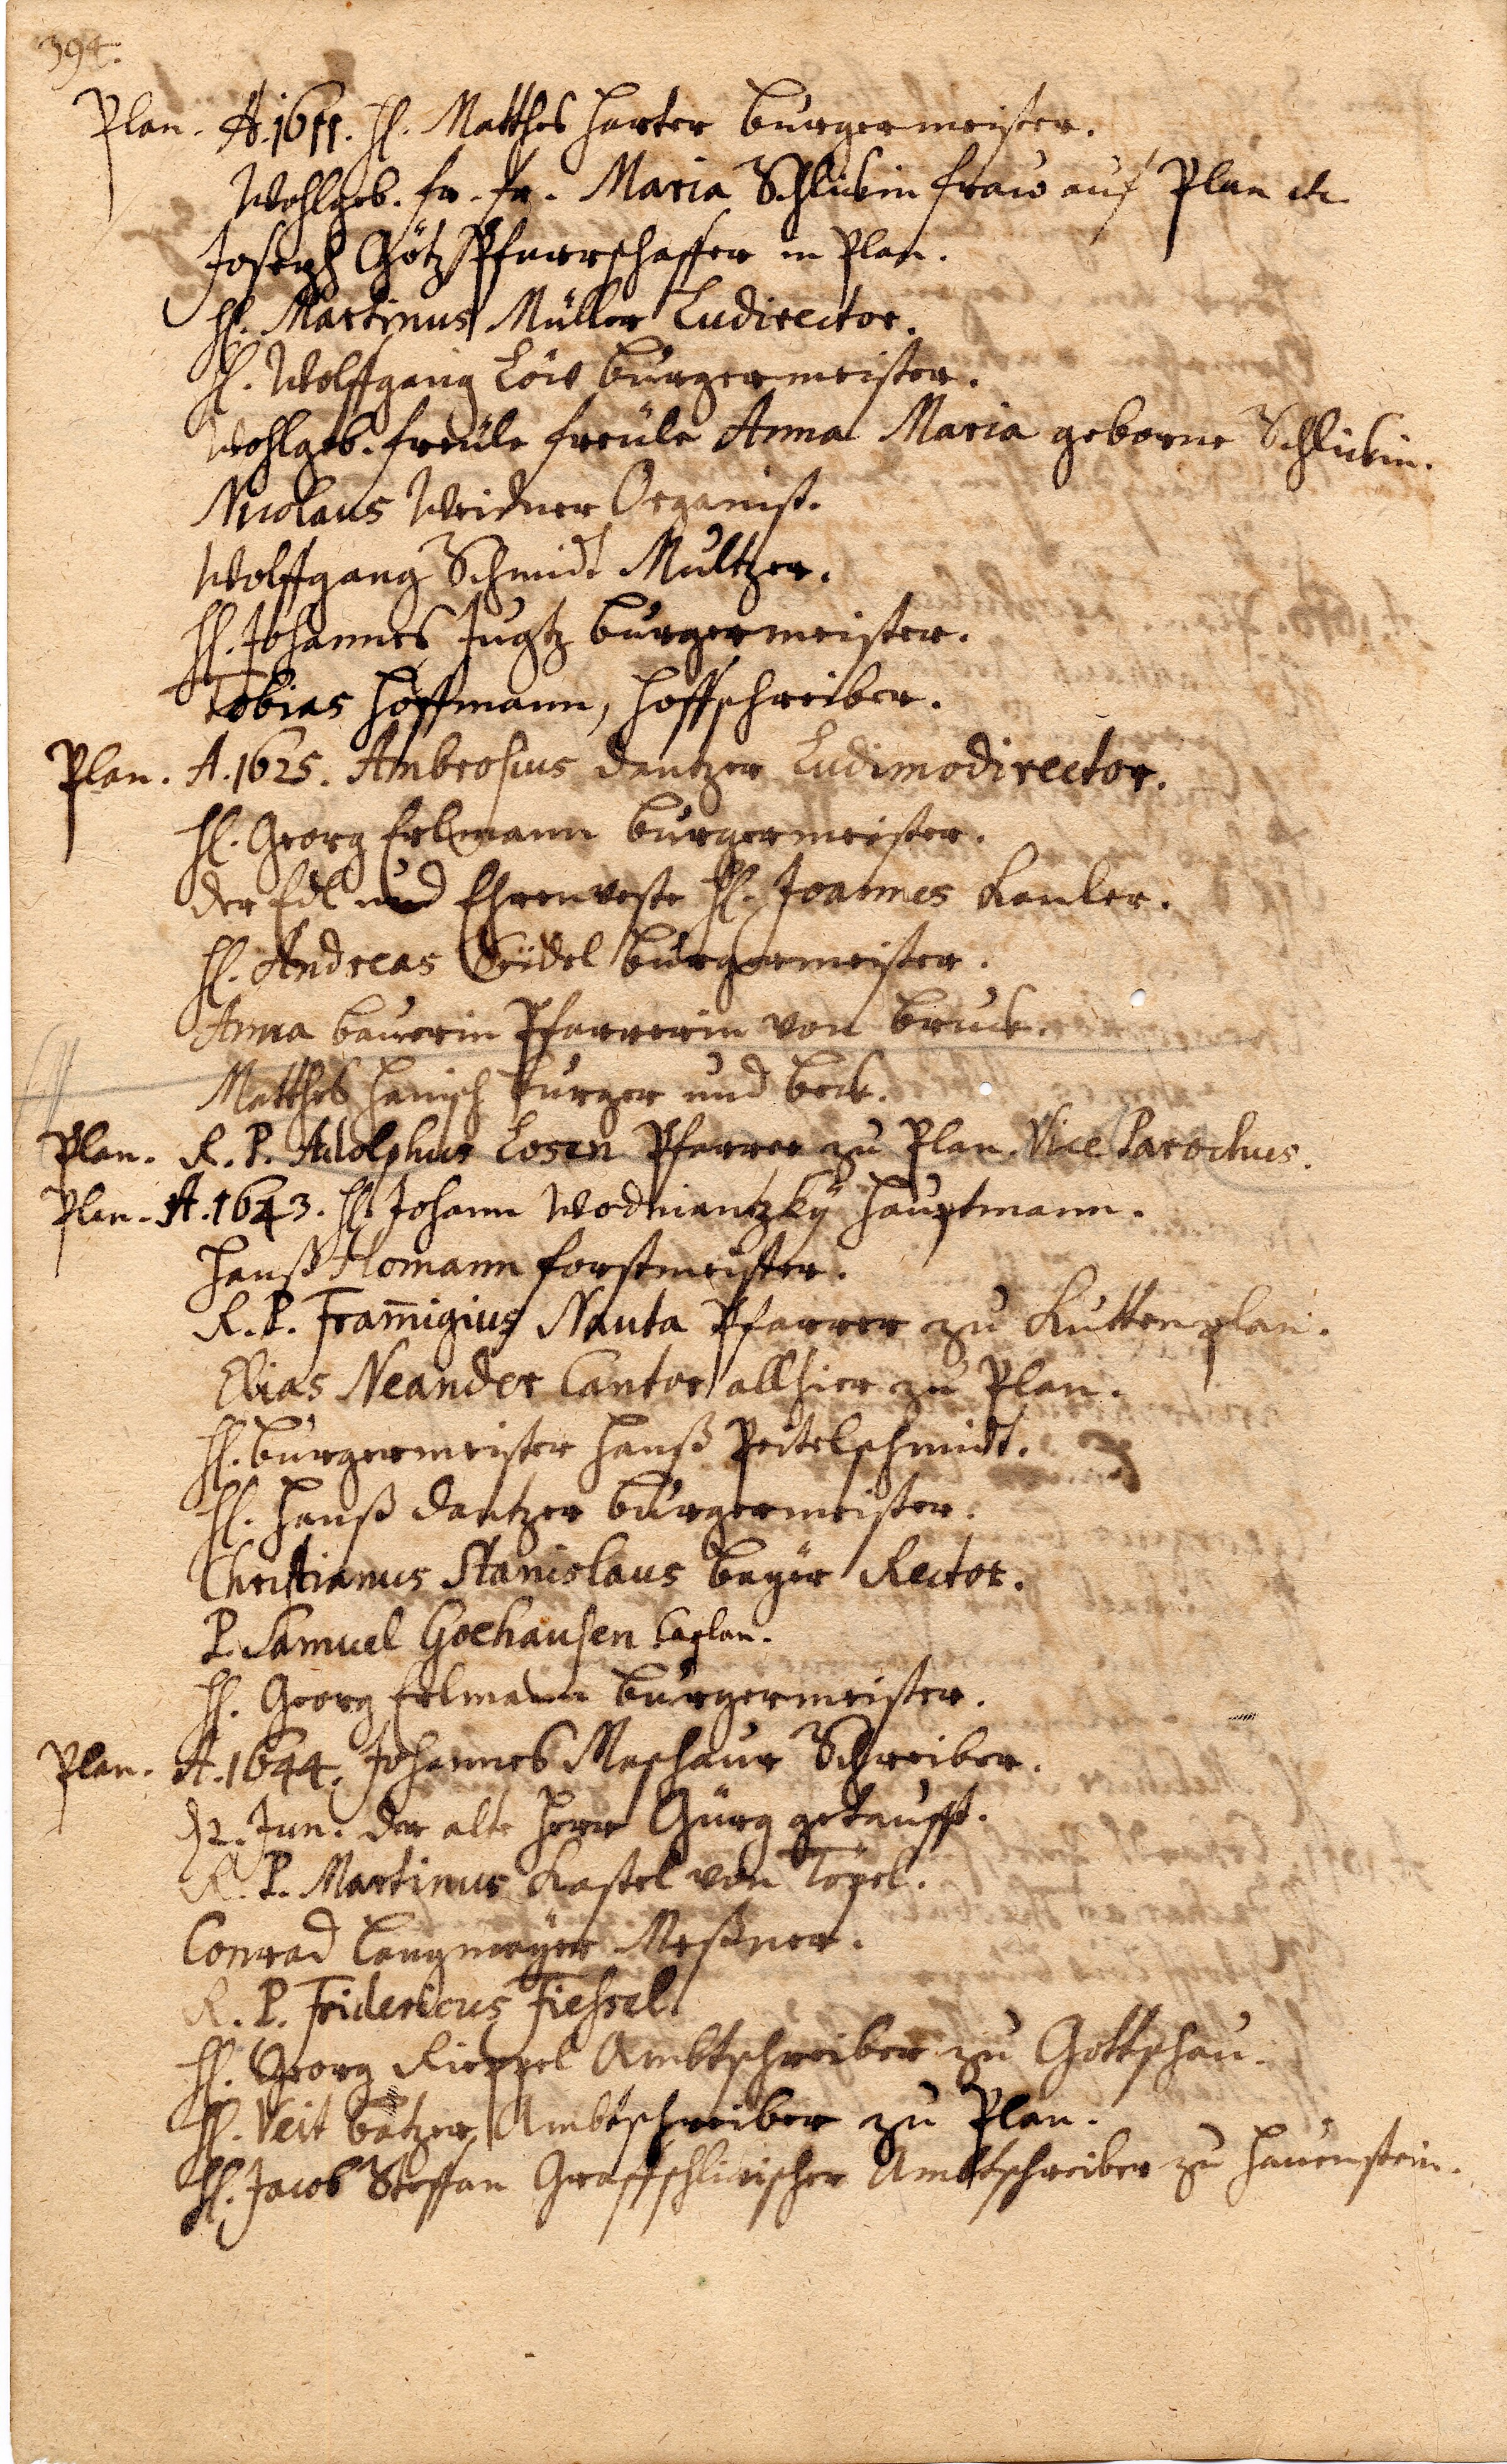 394.
Plan. A. 1611. H. Matthes Harter Burgermeister.
Wohlgeb. fr. fr. Maria Schlickin Fraw auf Plan etc.
Joseph Götz Pfarrschaffer in Plan.
H. Martinus Müller Ludirector.
H. Wolffgang Löw Burgermeister.
Wohlgeb. Freüle Freüle Anna Maria geborne Schlickin.
Nicolaus Weidner Organist.
Wolffgang Schmidt Multzer.
H. Johannes Jugtz Burgermeister.
Tobias Hoffmann, Hoffschreiber.
Plan. A. 1625. Ambrosius Dantzer Ludimodirector.
H. Georg Erlmann Burgermeister.
Der Edl und Ehrenveste H. Joannes Kanler.
H. Andreas Seidel Burgermeister.
Anna Baurin Pfarrerin von Bruck.
Matthes Hanisch Burger und Beck.
Plan. R. P. Adolphus Losen Pfarrer zu Plan. Vice Parochus.
Plan. A. 1643. H. Johann Wodniantzky Hauptmann.
Hanß Homann Forstmeister.
R. P. Fram̄igius Nauta Pfarrer zu Kuttenplan.
Elias Neander Cantor allhier zu Plan.
H. Burgermeister Hanß Peitelschmidt.
H. Hanß Dantzer Burgermeister.
Christianus Stanislaus Beyer Rector.
P. Samuel Goehausen Caplan.
H. Georg Erlmann Burgermeister.
Plan. A. 1644. Johannes Maschaur Schreiber.
2. Jun. der alte Herr Gürg getaufft.
R. P. Martinus Kastel von Töpel.
Conrad Langmayer Meßner.
R. P. Fridericus Fiessel.
H. Georg Rieppel Ambtschreiber zu Gottschau.
H. Veit Batzer, Ambtschreiber zu Plan.
H. Jacob Steffan Graffschlickischer Ambtschreiber zu Hauenstein.